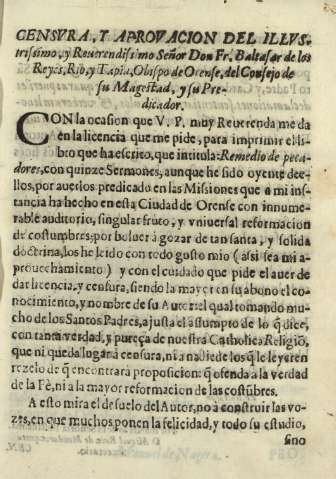 CENSVRA, Y APROVACION DEL ILLVS-
trissimo, y Reuerendissimo Señor Don Fr. Baltasar de los
Reyes, Rio, y Tapia, Obispo de Orense, del Consejo de
su Magestad, y su Pre-
dicador.
CON la ocasion que V. P. muy Reuerenda me da
en la licencia que me pide, para imprimir el li-
bro que ha escrito, que intitula: Remedio de peca-
dores, con quinze Sermones, aunque he sido oyente de e-
llos, por auerlos predicado en las Missiones que à mi ins-
tancia ha hecho en esta Ciudad de Orense con innume-
rable auditorio, singular fruto, y vniuersal reformacion
de costumbres; por boluer à gozar de tan santa, y solida
doctrina, los he leido con todo gusto mio (assi sea mi a-
prouechamiento) y con el cuidado que pide el auer de
dar licencia, y censura, siendo la mayor en su abono el co-
nocimiento, y nombre de su Autor: el qual tomando mu-
cho de los Santos Padres, ajusta el assumpto de lo q̃ dice,
con tanta verdad, y pureça de nuestra Catholica Religiõ,
que ni queda lugar à censura, ni a nadie de los q̃ le leyeren
rezelo de q̃ encontrarà proposicion: q̃ ofenda à la verdad
de la Fè, ni a la mayor reformacion de las costũbres.
A esto mira el desuelo del Autor, no à construir las vo-
zes, en que muchos ponen la felicidad, y todo su estudio,
sino